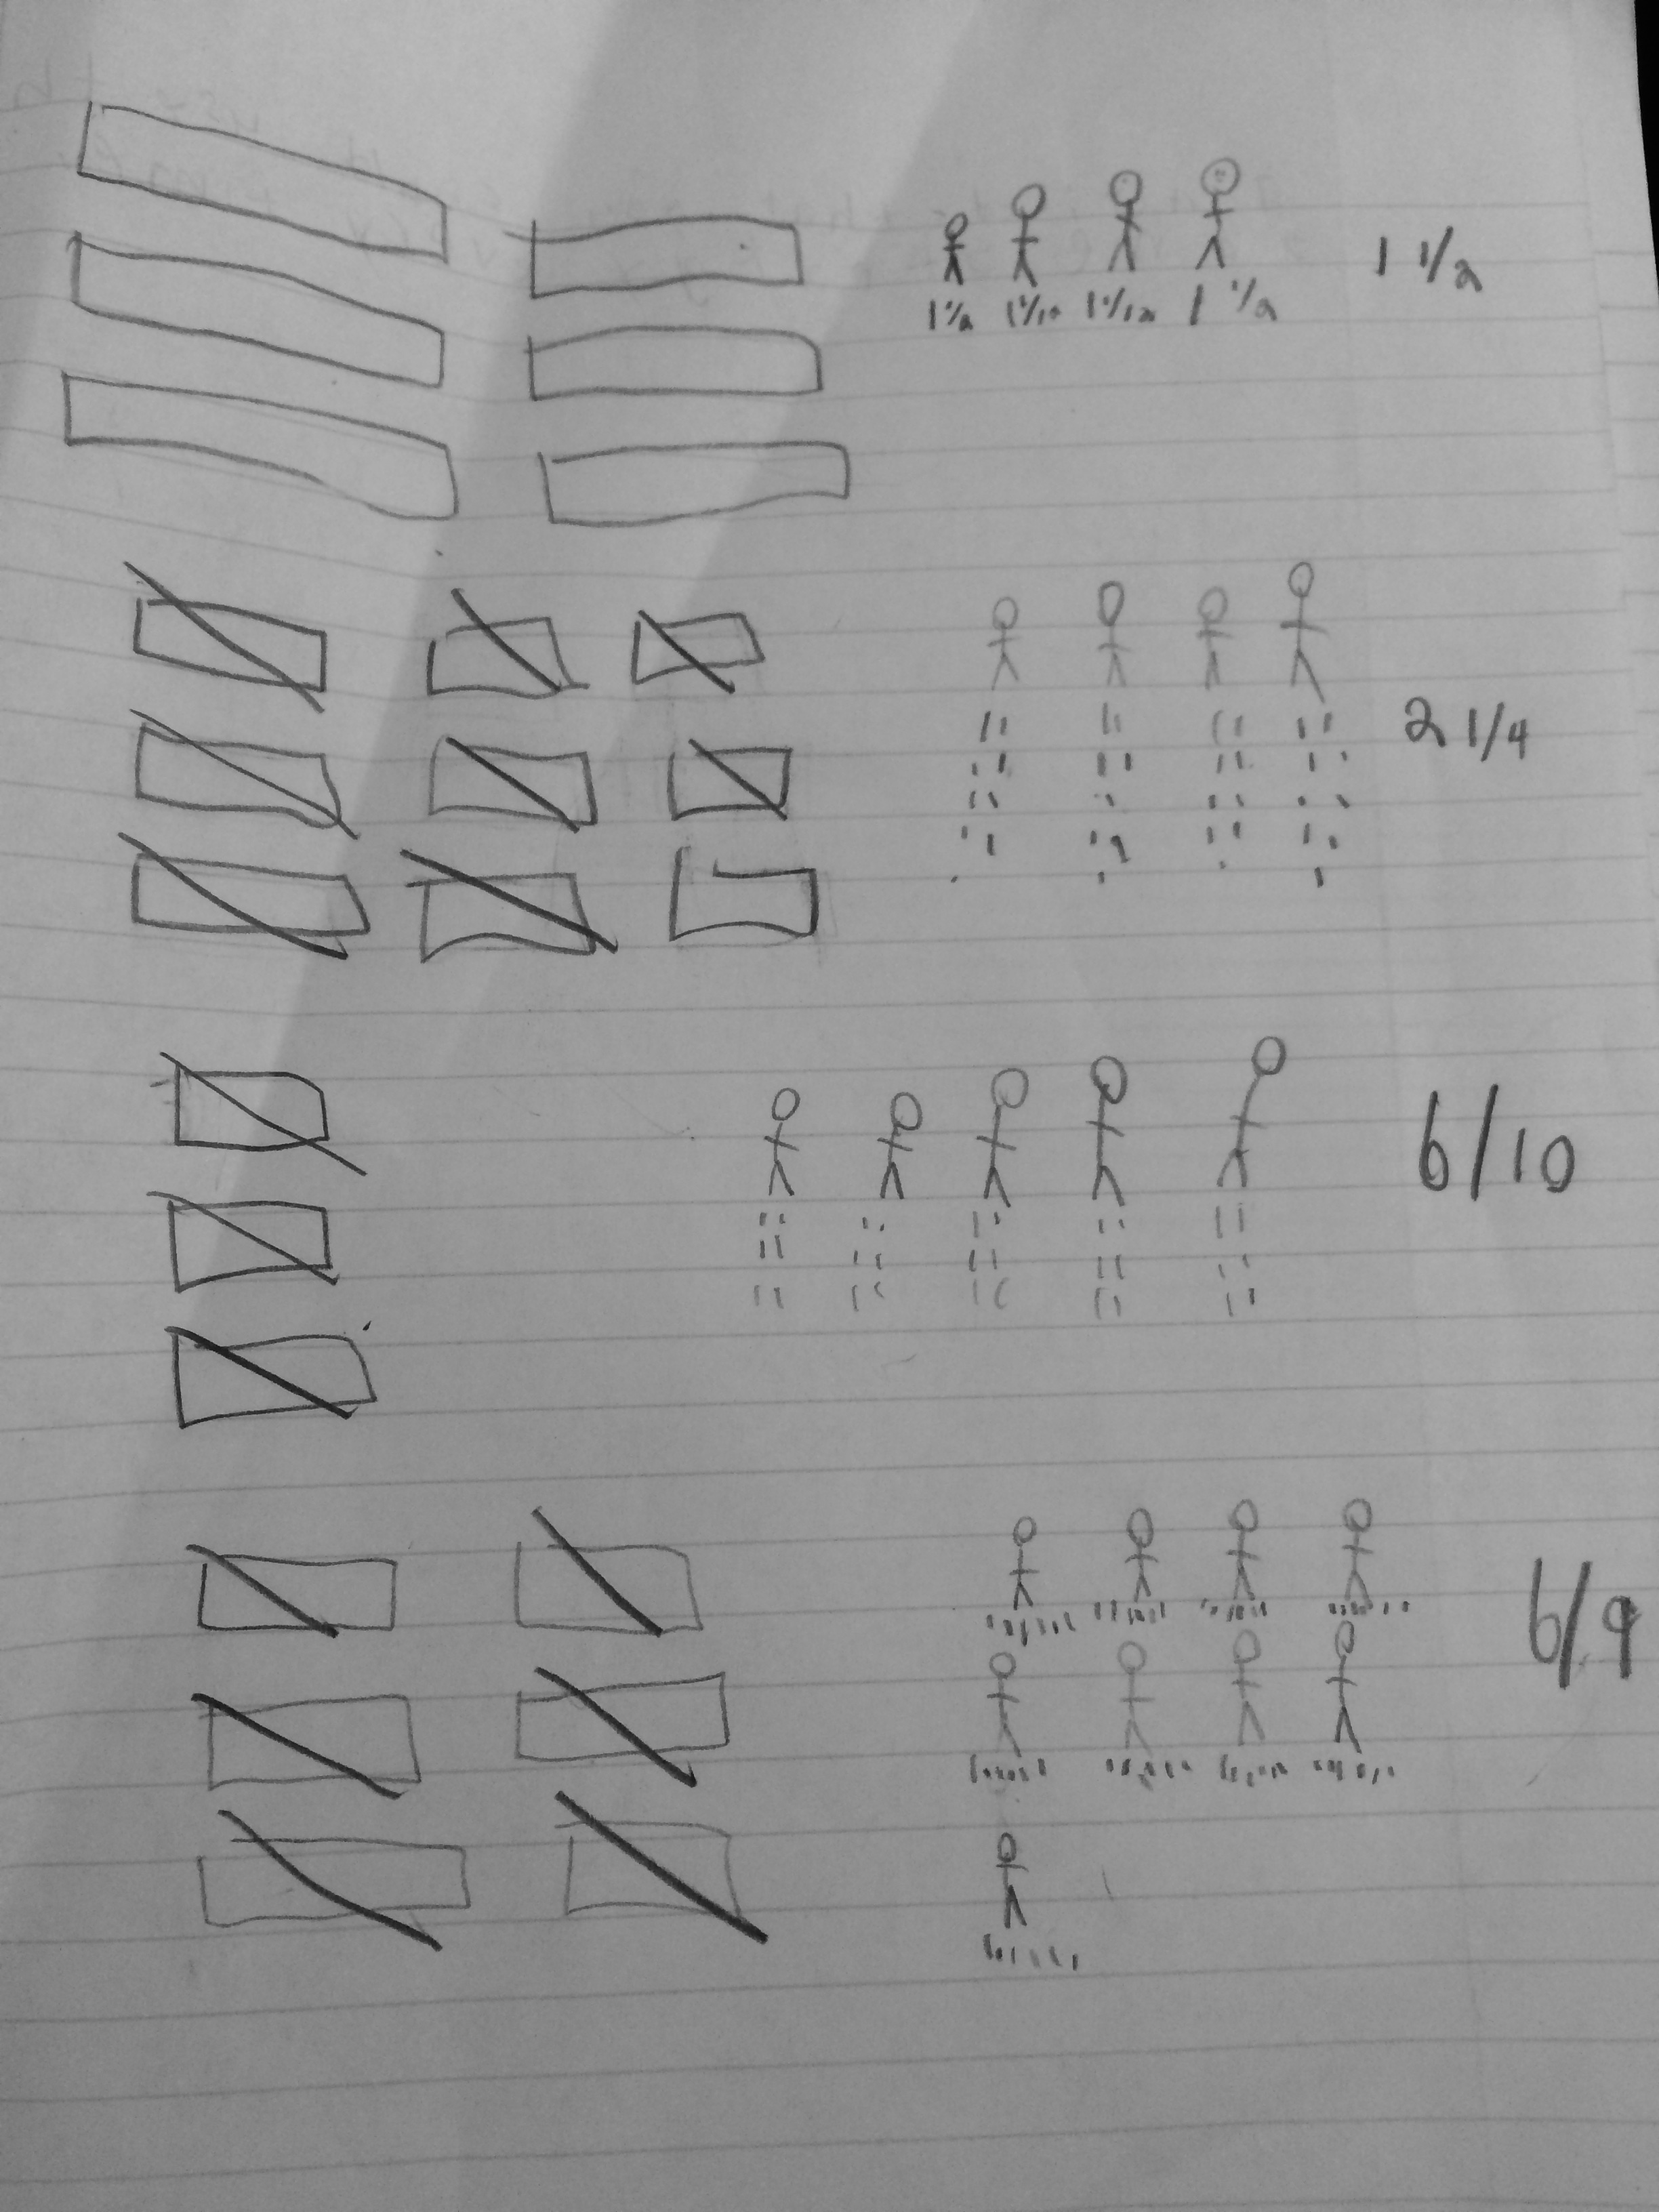 1 1/2
1 1/2 1 1/2 1 1/2 1 1/2
2 1/4
6/10
6/9